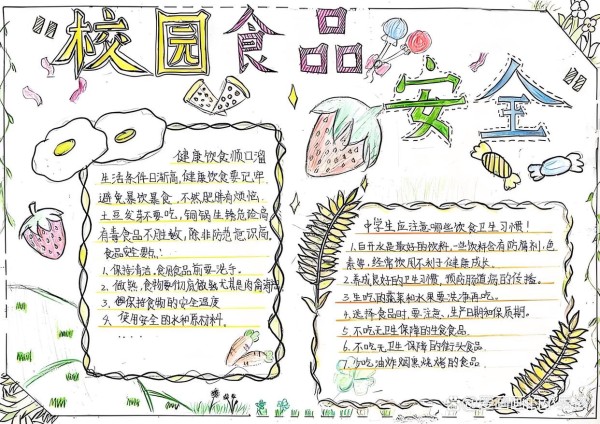 "校园食品
安全"
健康饮食顺口溜
生活条件日渐高,健康饮食要记牢
避免暴饮暴食,不然肥胖有烦恼
土豆发芽不要吃,铜锅生锈危险高
有毒食品不胜数,除非防范意识高
食品安全要点:
1、保持清洁,食用食品前要洗手。
2、做熟,食物要彻底做熟尤其是肉禽海
3、保持食物的安全温度
4、使用安全的水和原材料。
......
中学生应注意哪些饮食卫生习惯!
1.白开水是最好的饮料,一些饮料含有防腐剂,色
素等,经常饮用不利于健康成长。
2.养成良好的卫生习惯,预防肠道病的传播。
3.生吃的蔬菜和水果要洗净再吃。
4.选择食品时,要注意、生产日期和保质期。
5.不吃无卫生保障的生食食品
6.不吃无卫生保障的街头食品
7.少吃油炸烟熏烧烤的食品